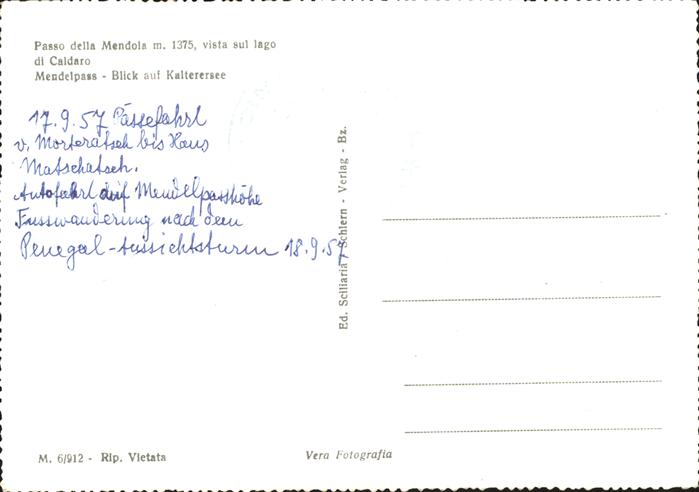 Passo della Mendola m. 1375, vista sul lago
di Caldaro
Mendelpass - Blick auf Kalterersee
17.9.57 Pässefahrt
v. Morteratsch bis Haus
Matschatsch.
Autofahrt auf Mendelpasshöhe
Fusswanderung nach dem
Penegal-Aussichtsturm 18.9.57
Ed. Sciliaria Schlern - Verlag - Bz.
M. 6/912 - Rip. Vietata
Vera Fotografia